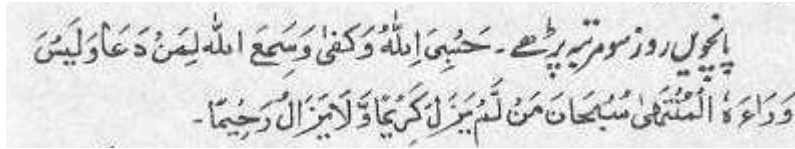 پانچویں روز سو مرتبہ پڑھے۔ حَسْبِیَ اللّٰهُ وَکَفٰی وَسَمِعَ اللّٰه لِمَنْ دَعَا وَلَیْسَ
وَرَاءَهُ الْمُنْتَهٰی سُبْحَانَ مَنْ لَّمْ یَزَلْ کَرِیْمًا وَّ لَا یَزَالُ رَحِیْمًا۔